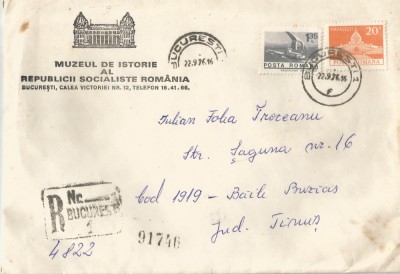 MUZEUL DE ISTORIE
AL
REPUBLICII SOCIALISTE ROMÂNIA
BUCUREȘTI, CALEA VICTORIEI NR. 12, TELEFON 16.41.68.
BUCUREȘTI
22.9.76.16
1,35
POSTA ROMANA
BUCUREȘTI
22.9.76.16
20
Iulian Folea Troceanu
Str. Șaguna nr. 16
Cod 1919 - Băile Buziaș
Jud. Timiș
R
Nc.
BUCUREȘTI
1
4822
91746